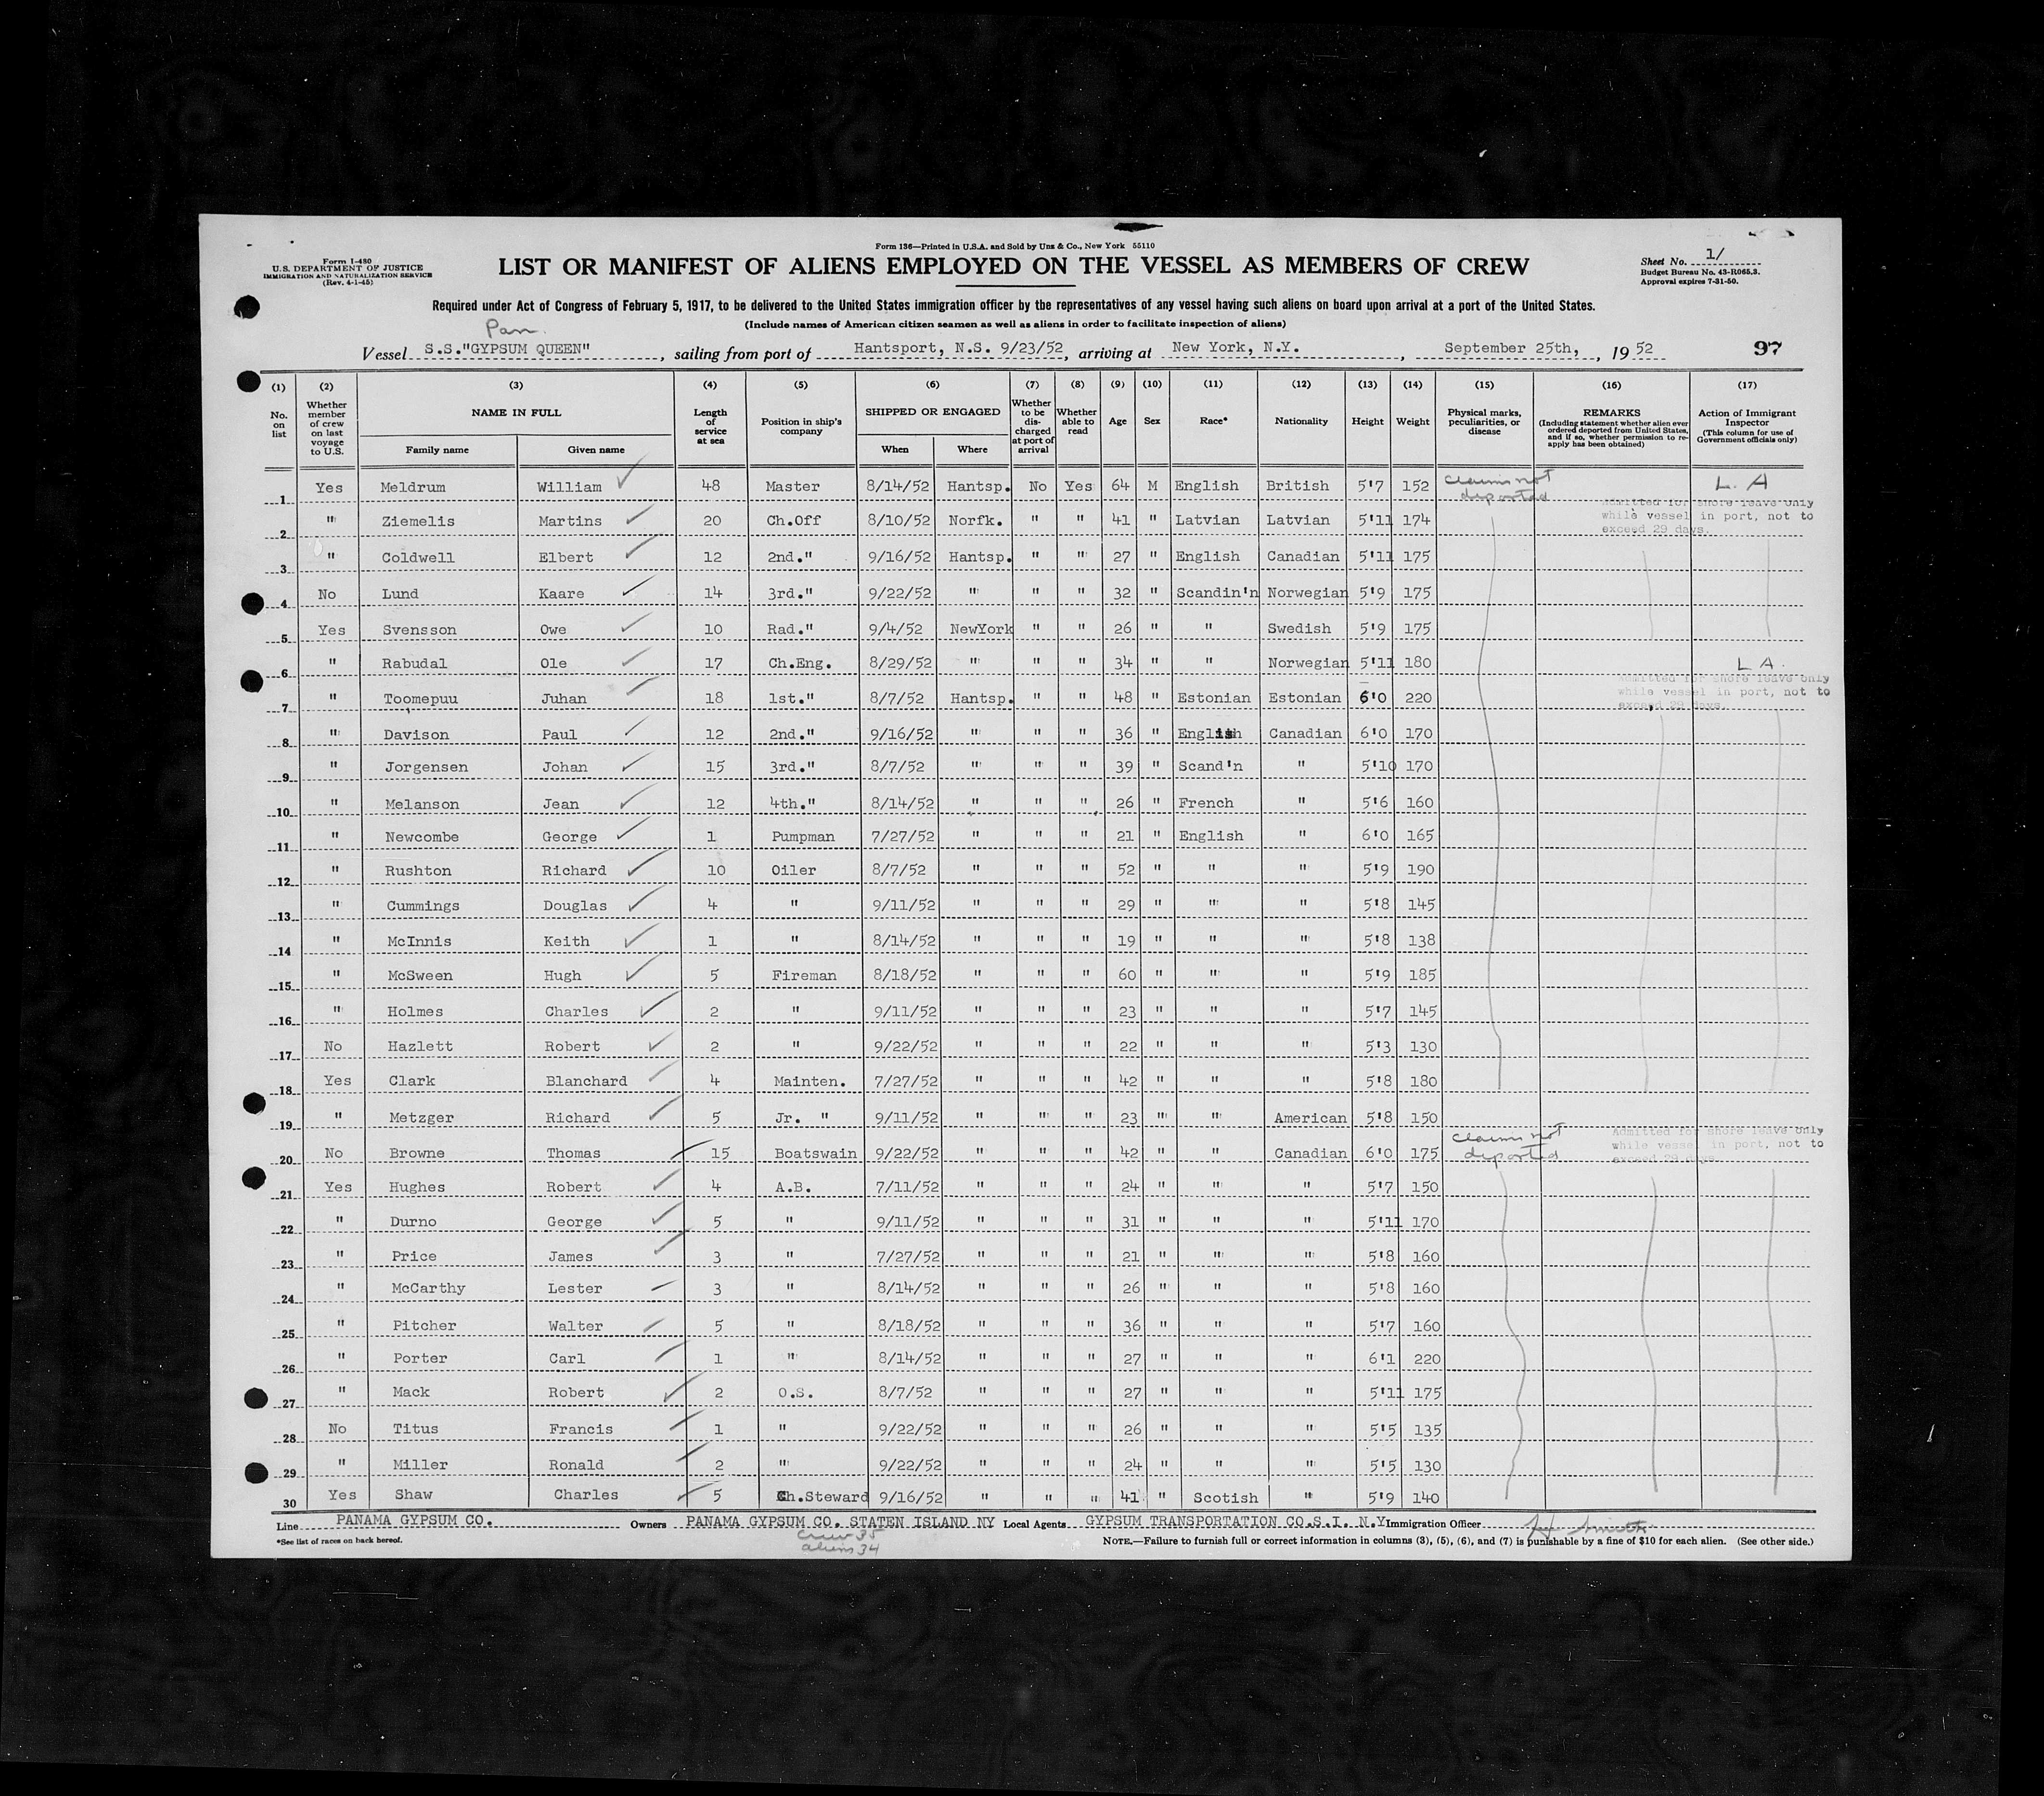 Form 136—Printed in U.S.A. and Sold by Unz & Co., New York 55110
Form I-480
U.S. DEPARTMENT OF JUSTICE
IMMIGRATION AND NATURALIZATION SERVICE
(Rev. 4-1-45)
LIST OR MANIFEST OF ALIENS EMPLOYED ON THE VESSEL AS MEMBERS OF CREW
Sheet No. 1/
Budget Bureau No. 43-R065.3.
Approval expires 7-31-50.
Required under Act of Congress of February 5, 1917, to be delivered to the United States immigration officer by the representatives of any vessel having such aliens on board upon arrival at a port of the United States.
(Include names of American citizen seamen as well as aliens in order to facilitate inspection of aliens)
Pan.
Vessel S.S."GYPSUM QUEEN" , sailing from port of Hantsport, N.S. 9/23/52, arriving at New York, N.Y. , September 25th, , 19 52 97
(1) (2) (3) (4) (5) (6) (7) (8) (9) (10) (11) (12) (13) (14) (15) (16) (17)
No. on list
Whether member of crew on last voyage to U.S.
NAME IN FULL
Family name Given name
Length of service at sea
Position in ship's company
SHIPPED OR ENGAGED
When Where
Whether to be discharged at port of arrival
Whether able to read
Age Sex Race* Nationality Height Weight
Physical marks, peculiarities, or disease
REMARKS
(Including statement whether alien ever ordered deported from United States, and if so, whether permission to reapply has been obtained)
Action of Immigrant Inspector
(This column for use of Government officials only)
1 Yes Meldrum William 48 Master 8/14/52 Hantsp. No Yes 64 M English British 5'7 152 claims not deported L. A
Admitted for shore leave only while vessel in port, not to exceed 29 days.
2 " Ziemelis Martins 20 Ch.Off 8/10/52 Norfk. " " 41 " Latvian Latvian 5'11 174
3 " Coldwell Elbert 12 2nd." 9/16/52 Hantsp. " " 27 " English Canadian 5'11 175
4 No Lund Kaare 14 3rd." 9/22/52 " " " 32 " Scandin'n Norwegian 5'9 175
5 Yes Svensson Owe 10 Rad." 9/4/52 NewYork " " 26 " " Swedish 5'9 175
6 " Rabudal Ole 17 Ch.Eng. 8/29/52 " " " 34 " " Norwegian 5'11 180 L A.
Admitted for shore leave only while vessel in port, not to exceed 29 days.
7 " Toomepuu Juhan 18 1st." 8/7/52 Hantsp. " " 48 " Estonian Estonian 6'0 220
8 " Davison Paul 12 2nd." 9/16/52 " " " 36 " English Canadian 6'0 170
9 " Jorgensen Johan 15 3rd." 8/7/52 " " " 39 " Scand'n " 5'10 170
10 " Melanson Jean 12 4th." 8/14/52 " " " 26 " French " 5'6 160
11 " Newcombe George 1 Pumpman 7/27/52 " " " 21 " English " 6'0 165
12 " Rushton Richard 10 Oiler 8/7/52 " " " 52 " " " 5'9 190
13 " Cummings Douglas 4 " 9/11/52 " " " 29 " " " 5'8 145
14 " McInnis Keith 1 " 8/14/52 " " " 19 " " " 5'8 138
15 " McSween Hugh 5 Fireman 8/18/52 " " " 60 " " " 5'9 185
16 " Holmes Charles 2 " 9/11/52 " " " 23 " " " 5'7 145
17 No Hazlett Robert 2 " 9/22/52 " " " 22 " " " 5'3 130
18 Yes Clark Blanchard 4 Mainten. 7/27/52 " " " 42 " " " 5'8 180
19 " Metzger Richard 5 Jr. " 9/11/52 " " " 23 " " American 5'8 150
20 No Browne Thomas 15 Boatswain 9/22/52 " " " 42 " " Canadian 6'0 175 claims not deported
Admitted for shore leave only while vessel in port, not to exceed 29 days
21 Yes Hughes Robert 4 A.B. 7/11/52 " " " 24 " " " 5'7 150
22 " Durno George 5 " 9/11/52 " " " 31 " " " 5'11 170
23 " Price James 3 " 7/27/52 " " " 21 " " " 5'8 160
24 " McCarthy Lester 3 " 8/14/52 " " " 26 " " " 5'8 160
25 " Pitcher Walter 5 " 8/18/52 " " " 36 " " " 5'7 160
26 " Porter Carl 1 " 8/14/52 " " " 27 " " " 6'1 220
27 " Mack Robert 2 O.S. 8/7/52 " " " 27 " " " 5'11 175
28 No Titus Francis 1 " 9/22/52 " " " 26 " " " 5'5 135
29 " Miller Ronald 2 " 9/22/52 " " " 24 " " " 5'5 130
30 Yes Shaw Charles 5 Ch.Steward 9/16/52 " " " 41 " Scotish " 5'9 140
Line PANAMA GYPSUM CO. Owners PANAMA GYPSUM CO. STATEN ISLAND NY Local Agents GYPSUM TRANSPORTATION CO.S.I. N.Y Immigration Officer Smith
crew 35
aliens 34
*See list of races on back hereof.
NOTE.—Failure to furnish full or correct information in columns (3), (5), (6), and (7) is punishable by a fine of $10 for each alien. (See other side.)